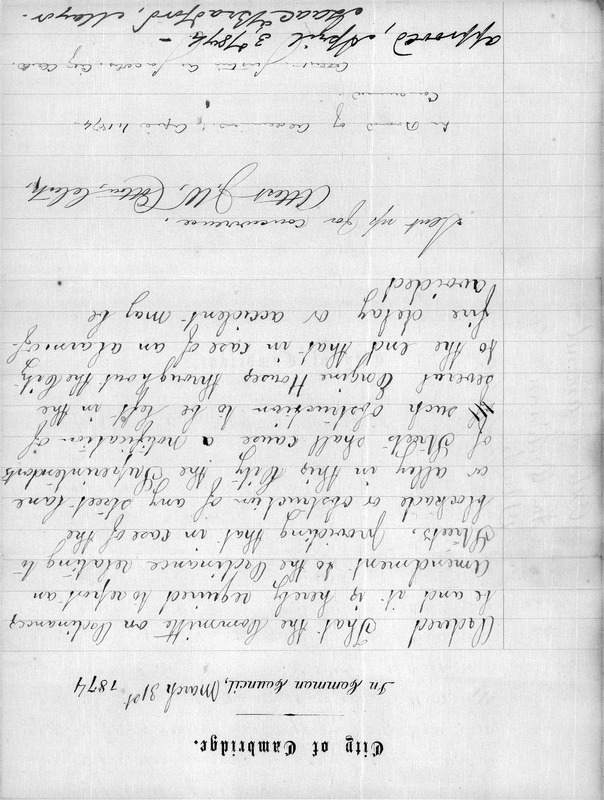 City of Cambridge.
In Common Council, March 31st 1874
Ordered That the Committe on Ordinances
be and it is hereby required to report an
amendment to the Ordinance relating to
Streets. providing that in case of the
blockade or obstruction of any street lane
or alley in this City the Superintendents
of Streets shall cause a notification of
such obstruction to be left in the
several Engine Houses throughout the City
to the end that in case of an alarm of
fire delay or accident may be
avoided
Sent up for concurrence.
Attest J. W. Cotton, Clerk,
In Board of Aldermen, April 1. 1874
Concurred.
Attest, Justin A. Jacobs, City Clerk.
approved, April 3 1874 -
Isaac Bradford, Mayor.